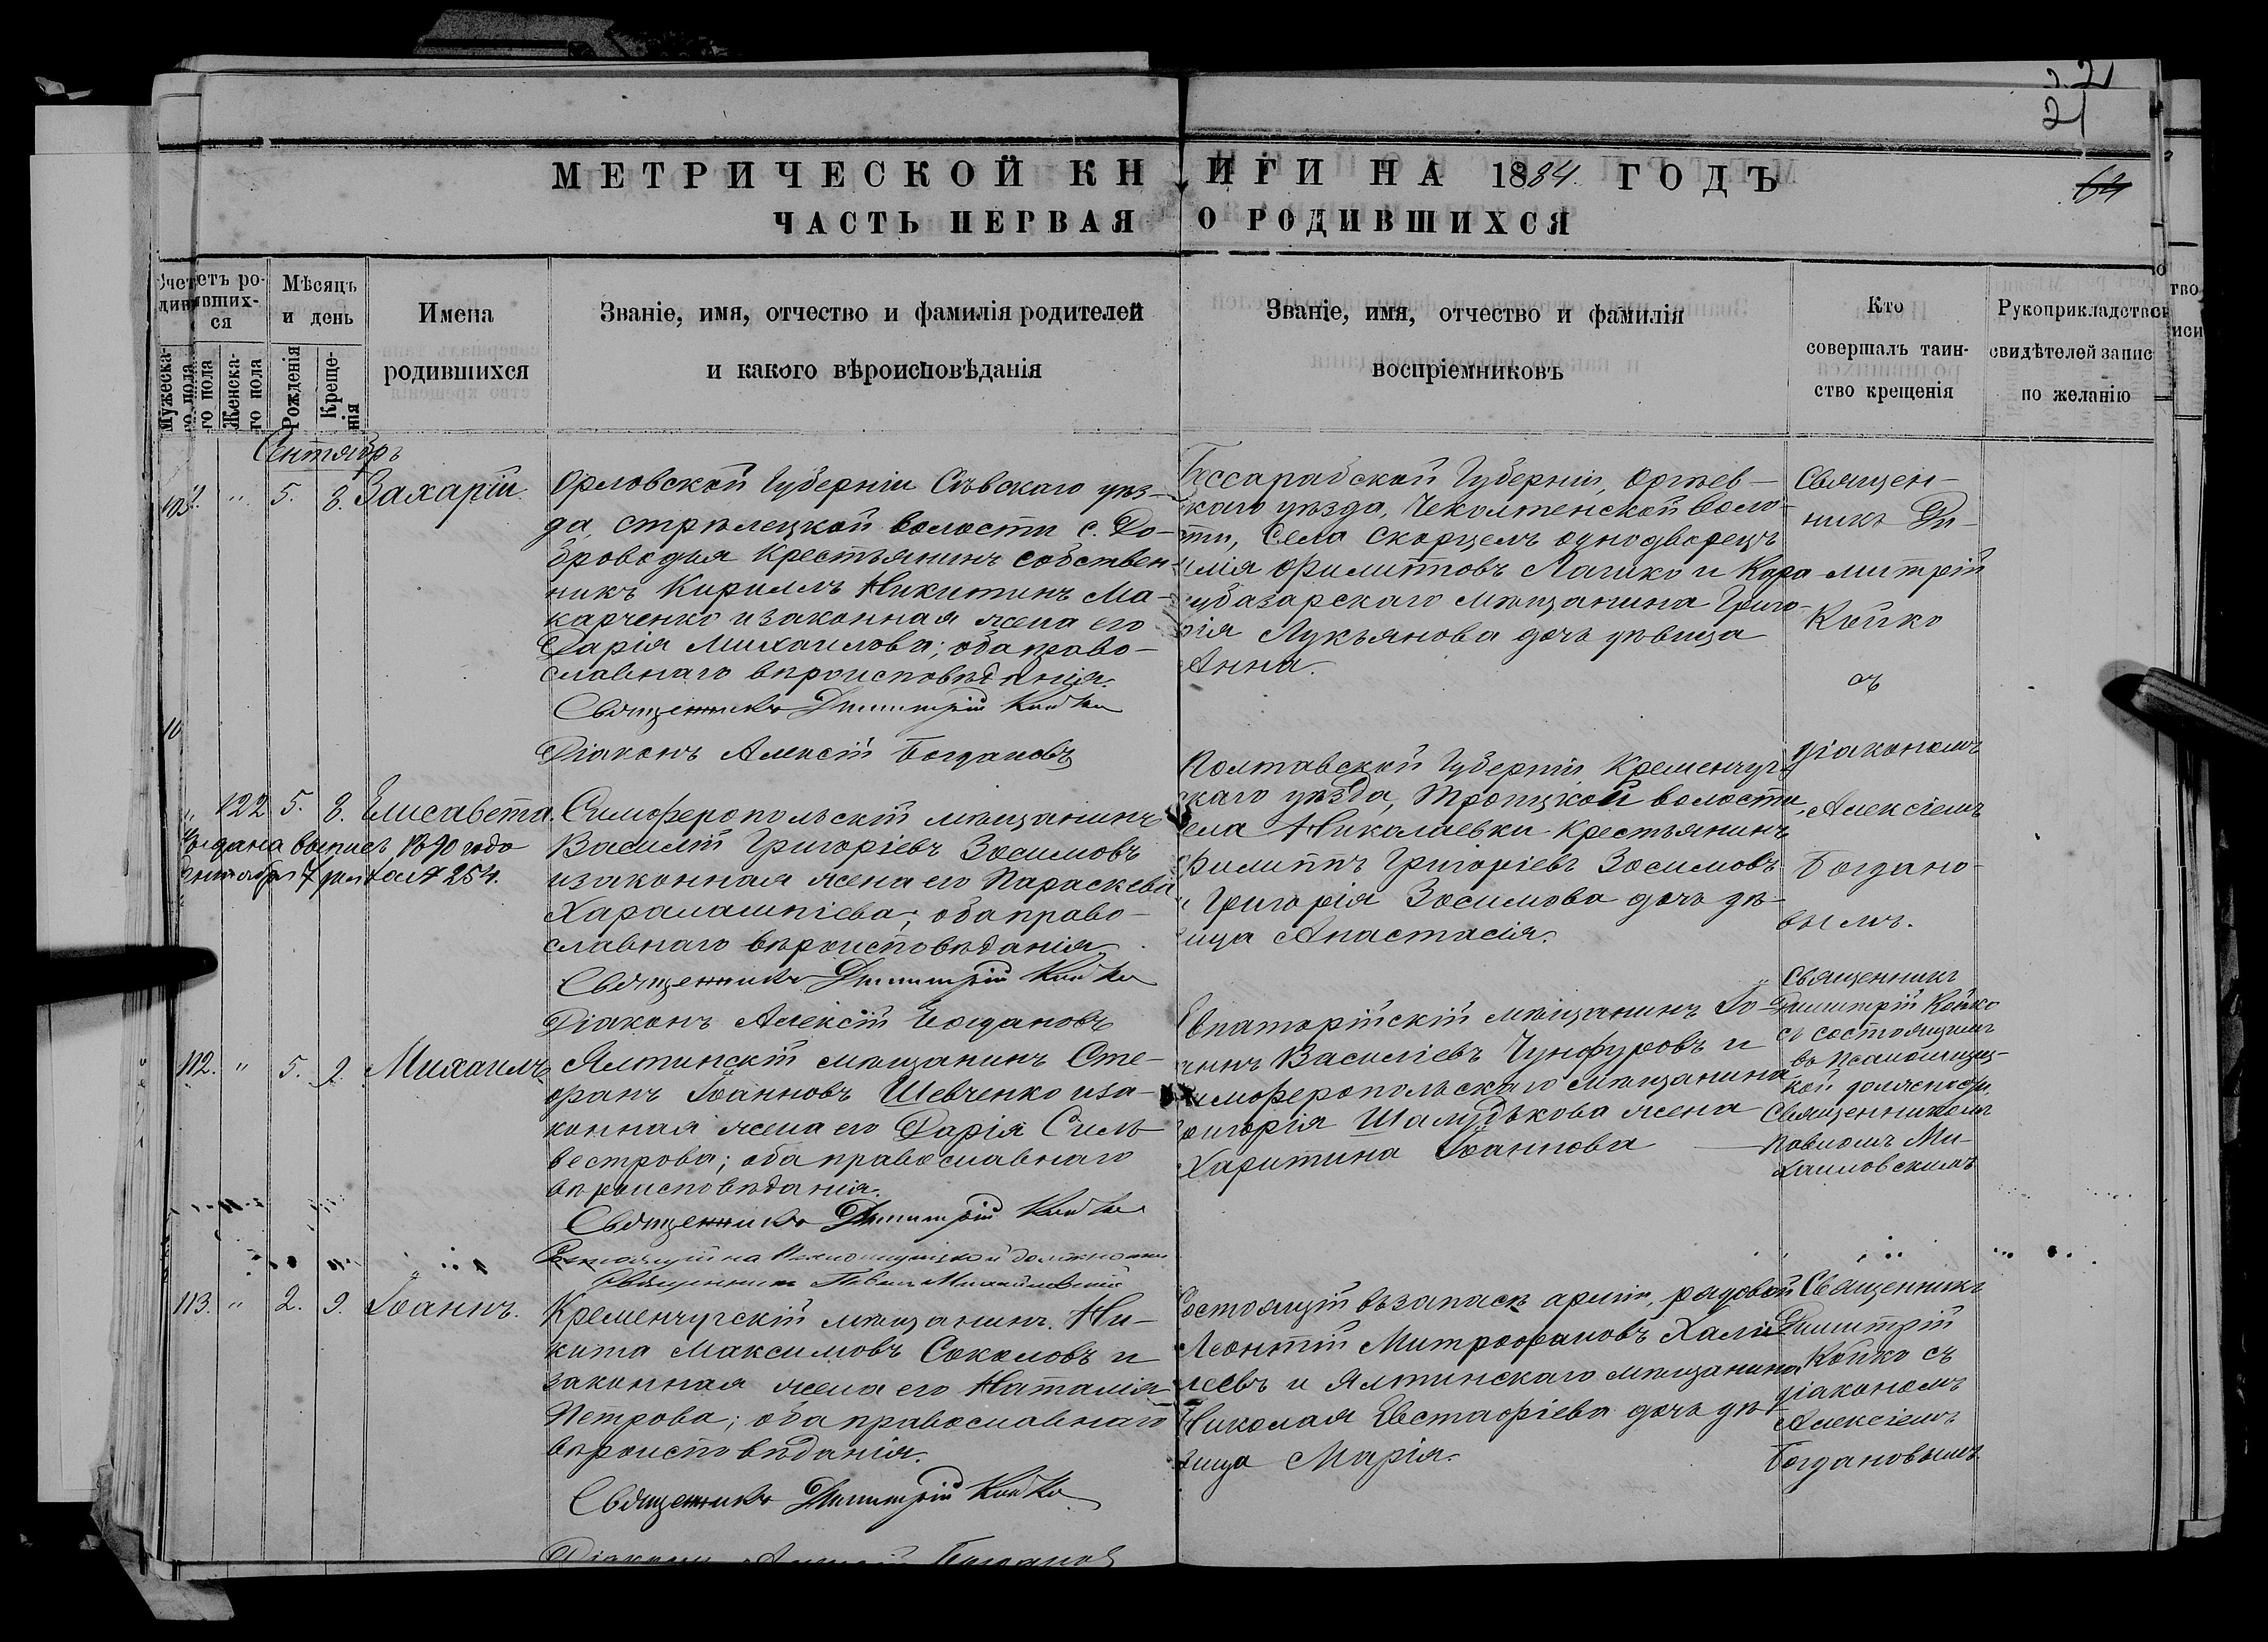 21
МЕТРИЧЕСКОЙ КНИГИ НА 1884. ГОДЪ
ЧАСТЬ ПЕРВАЯ О РОДИВШИХСЯ
Мѣсяцъ и день
Рожденія
Креще-нія
Мужеска-го пола
Женска-го пола
Имена
родившихся
Званіе, имя, отчество и фамилія родителей
и какого вѣроисповѣданія
Званіе, имя, отчество и фамилія
воспріемниковъ
Кто
совершалъ таин-
ство крещенія
Рукоприкладство
свидѣтелей запис
по желанію
Сентябрь
" 5. 8. Захарій.
Орловской Губерніи Сѣвскаго уѣз-
да, Стрѣлецкой волости с. До-
броводья Крестьянинъ собствен-
никъ Кириллъ Никитинъ Ма-
карченко и законная жена его
Дарія Михаилова; оба право-
славнаго вѣроисповѣданія.
Священникъ Димитрій Койко
Діаконъ Алексій Богдановъ
Бессарабской Губерніи, Оргѣев-
скаго уѣзда, Чеколтенской Воло-
сти, Села Скорцелъ однодворецъ
Филипповъ Лашко и Кара-
субазарскаго мѣщанина Григо-
рія Лукьянова дочь дѣвица
Анна.
Священ-
никъ Ди-
митрій
Койко
съ
діакономъ
Алексіемъ
Богдано-
вымъ.
" 122 5. 8. Елисавета.
Выдана выпись 1890 года
Сентября 7 дня за № 254.
Симферопольскій мѣщанинъ
Василій Григоріевъ Зосимовъ
и законная жена его Параскева
Харалампіева; оба право-
славнаго вѣроисповѣданія
Священникъ Димитрій Койко
Діаконъ Алексій Богдановъ
Полтавской Губерніи, Кременчуг-
скаго уѣзда, Троицкой волости,
села Николаевки крестьянинъ
Филиппъ Григоріевъ Зосимовъ
и Григорія Зосимова дочь дѣ-
вица Анастасія.
112. " 5. 9. Михаилъ
Ялтинскій мѣщанинъ Сте-
фанъ Іоанновъ Шевченко и за-
конная жена его Дарія Силь-
вестрова; оба православнаго
вѣроисповѣданія.
Священникъ Димитрій Койко
Состоящій на Псаломщицкой должности
Священникъ Павелъ Михайловскій
Евпаторійскій мѣщанинъ Іо-
аннъ Василіевъ Чунфуровъ и
Симферопольскаго мѣщанина
Григорія Шалудькова жена
Харитина Іоаннова
Священникъ
Димитрій Койко
съ состоящимъ
въ Псаломщиц-
кой должности,
Священникомъ
Павломъ Ми-
хаиловскимъ
113. " 2. 9. Іоаннъ.
Кременчугскій мѣщанинъ Ни-
кита Максимовъ Соколовъ и
законная жена его Наталія
Петрова; оба православнаго
вѣроисповѣданія.
Священникъ Димитрій Койко
Діаконъ Алексій Богдановъ
Состоящій въ запасѣ арміи, рядовой
Леонтій Митрофановъ
и Ялтинскаго мѣщанина
Николая Евстафіева дочь дѣ-
вица Марія.
Священникъ
Димитрій
Койко съ
діакономъ
Алексіемъ
Богдановымъ